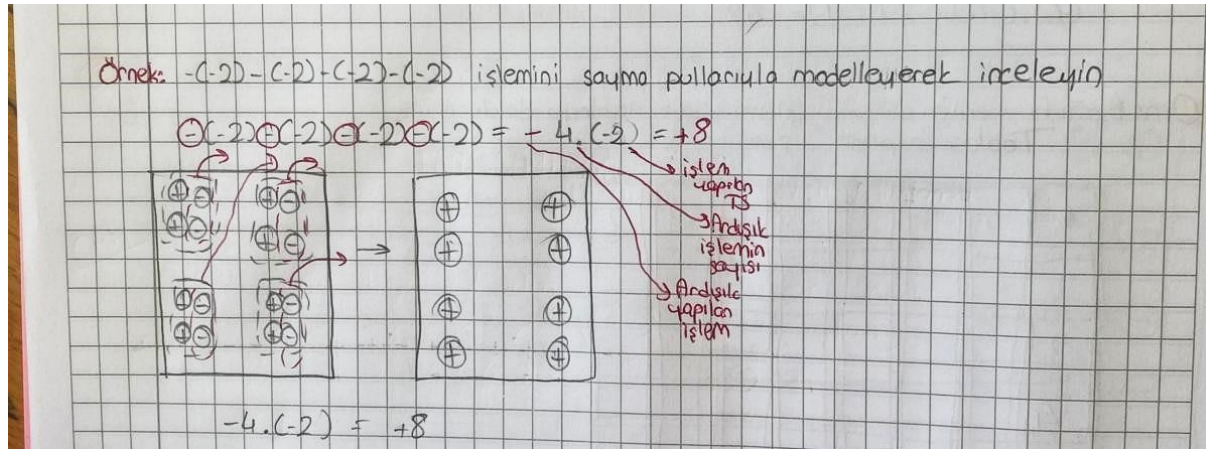 Örnek: -(-2)-(-2)-(-2)-(-2) işlemini sayma pullarıyla modelleyerek inceleyin
-(-2)-(-2)-(-2)-(-2) = - 4.(-2) = +8
işlem
yapılan
TS
Ardışık
işlemin
sayısı
Ardışık
yapılan
işlem
+ - + -
+ - + -
+ - + -
+ - + -
+ +
+ +
+ +
+ +
-4.(-2) = +8